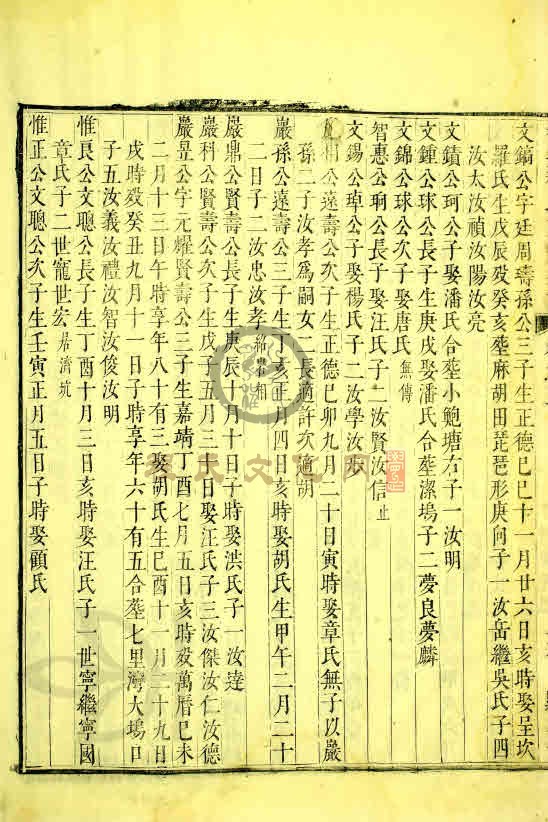 文鎬公字廷周壽孫公三子生正德己巳十一月廿六日亥時娶呈坎
羅氏生戊辰歿癸亥塟麻胡田琵琶形庚向子一汝岳繼吳氏子四
汝太汝禎汝陽汝亮
文鐀公珂公子娶潘氏合塟小鮑塘右子一汝明
文鍾公球公長子生庚戌娶潘氏合塟潔塢子二夢良夢麟
文錦公球公次子娶唐氏無傳
智惠公珦公長子娶汪氏子二汝賢汝信止
文錫公琸公子娶楊氏子二汝學汝
公遠壽公次子生正德己卯九月二十日寅時娶章氏無子以巖
孫二子汝孝為嗣女二長適許次適胡
巖孫公遠壽公三子生 亥正月四日亥時娶胡氏生甲午二月二十
二日子二汝忠汝孝
巖鼎公賢壽公長子生庚辰十月十日子時娶洪氏子一汝達
巖科公賢壽公次子生戊子五月三十日娶汪氏子三汝傑汝仁汝德
巖昱公字元耀賢壽公三子生嘉靖丁酉七月五日亥時歿萬曆己未
二月十三日午時享年八十有三娶胡氏生己酉十一月二十九日
戌時歿癸丑九月十一日子時享年六十有五合塟七里灣大塢口
子五汝義汝禮汝智汝俊汝明
惟良公文聰公長子生丁酉十月三日亥時娶汪氏子一世寧繼寧國
章氏子二世寵世宏居濟坑
惟正公文聰公次子生壬寅正月五日子時娶顧氏